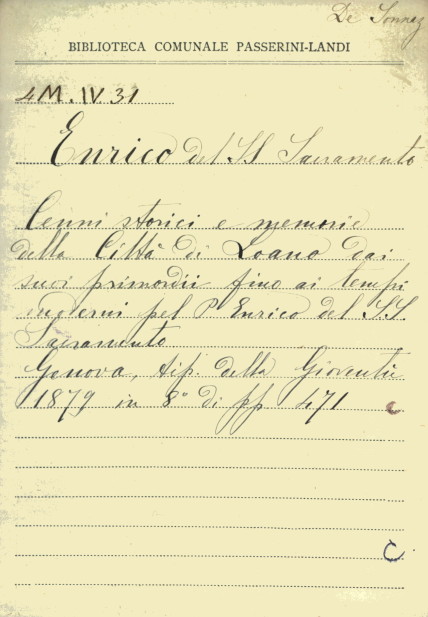 De Sonnaz
BIBLIOTECA COMUNALE PASSERINI-LANDI
4M.IV.31
Enrico del SS Sacramento
Cenni storici e memorie
della Città di Loano dai
suoi primordii fino ai tempi
moderni pel P. Enrico del SS.
Sacramento
Genova, tip. della Gioventù
1879 in 8° di pp 471 c
C